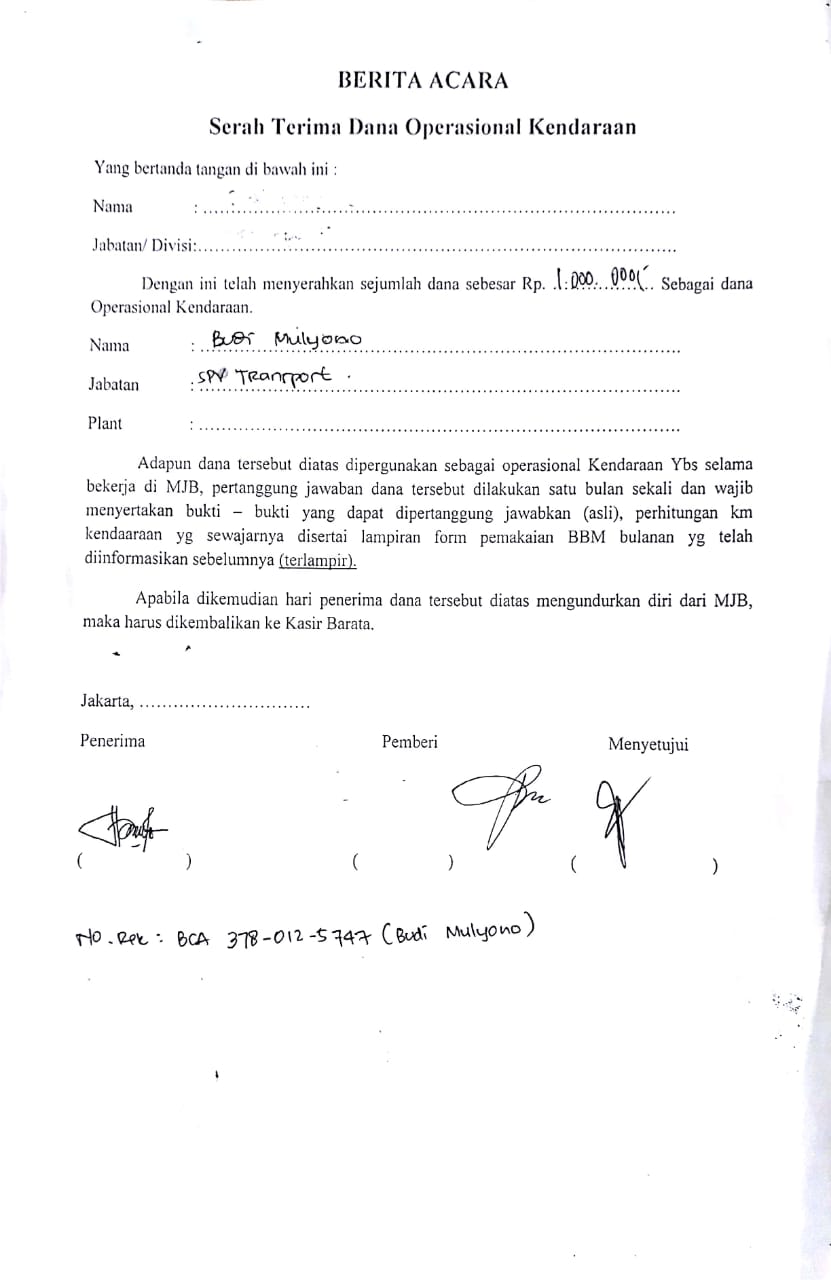 BERITA ACARA
Serah Terima Dana Operasional Kendaraan
Yang bertanda tangan di bawah ini :
Nama : ........................................................................................................
Jabatan/ Divisi:........................................................................................................
Dengan ini telah menyerahkan sejumlah dana sebesar Rp. 1.000.000,- Sebagai dana
Operasional Kendaraan.
Nama : Budi Mulyono
Jabatan : SPV Transport .
Plant : ........................................................................................................
Adapun dana tersebut diatas dipergunakan sebagai operasional Kendaraan Ybs selama
bekerja di MJB, pertanggung jawaban dana tersebut dilakukan satu bulan sekali dan wajib
menyertakan bukti – bukti yang dapat dipertanggung jawabkan (asli), perhitungan km
kendaaraan yg sewajarnya disertai lampiran form pemakaian BBM bulanan yg telah
diinformasikan sebelumnya (terlampir).
Apabila dikemudian hari penerima dana tersebut diatas mengundurkan diri dari MJB,
maka harus dikembalikan ke Kasir Barata.
Jakarta, ..............................
Penerima Pemberi Menyetujui
( ) ( ) ( )
No. Rek : BCA 378-012-5747 (Budi Mulyono)